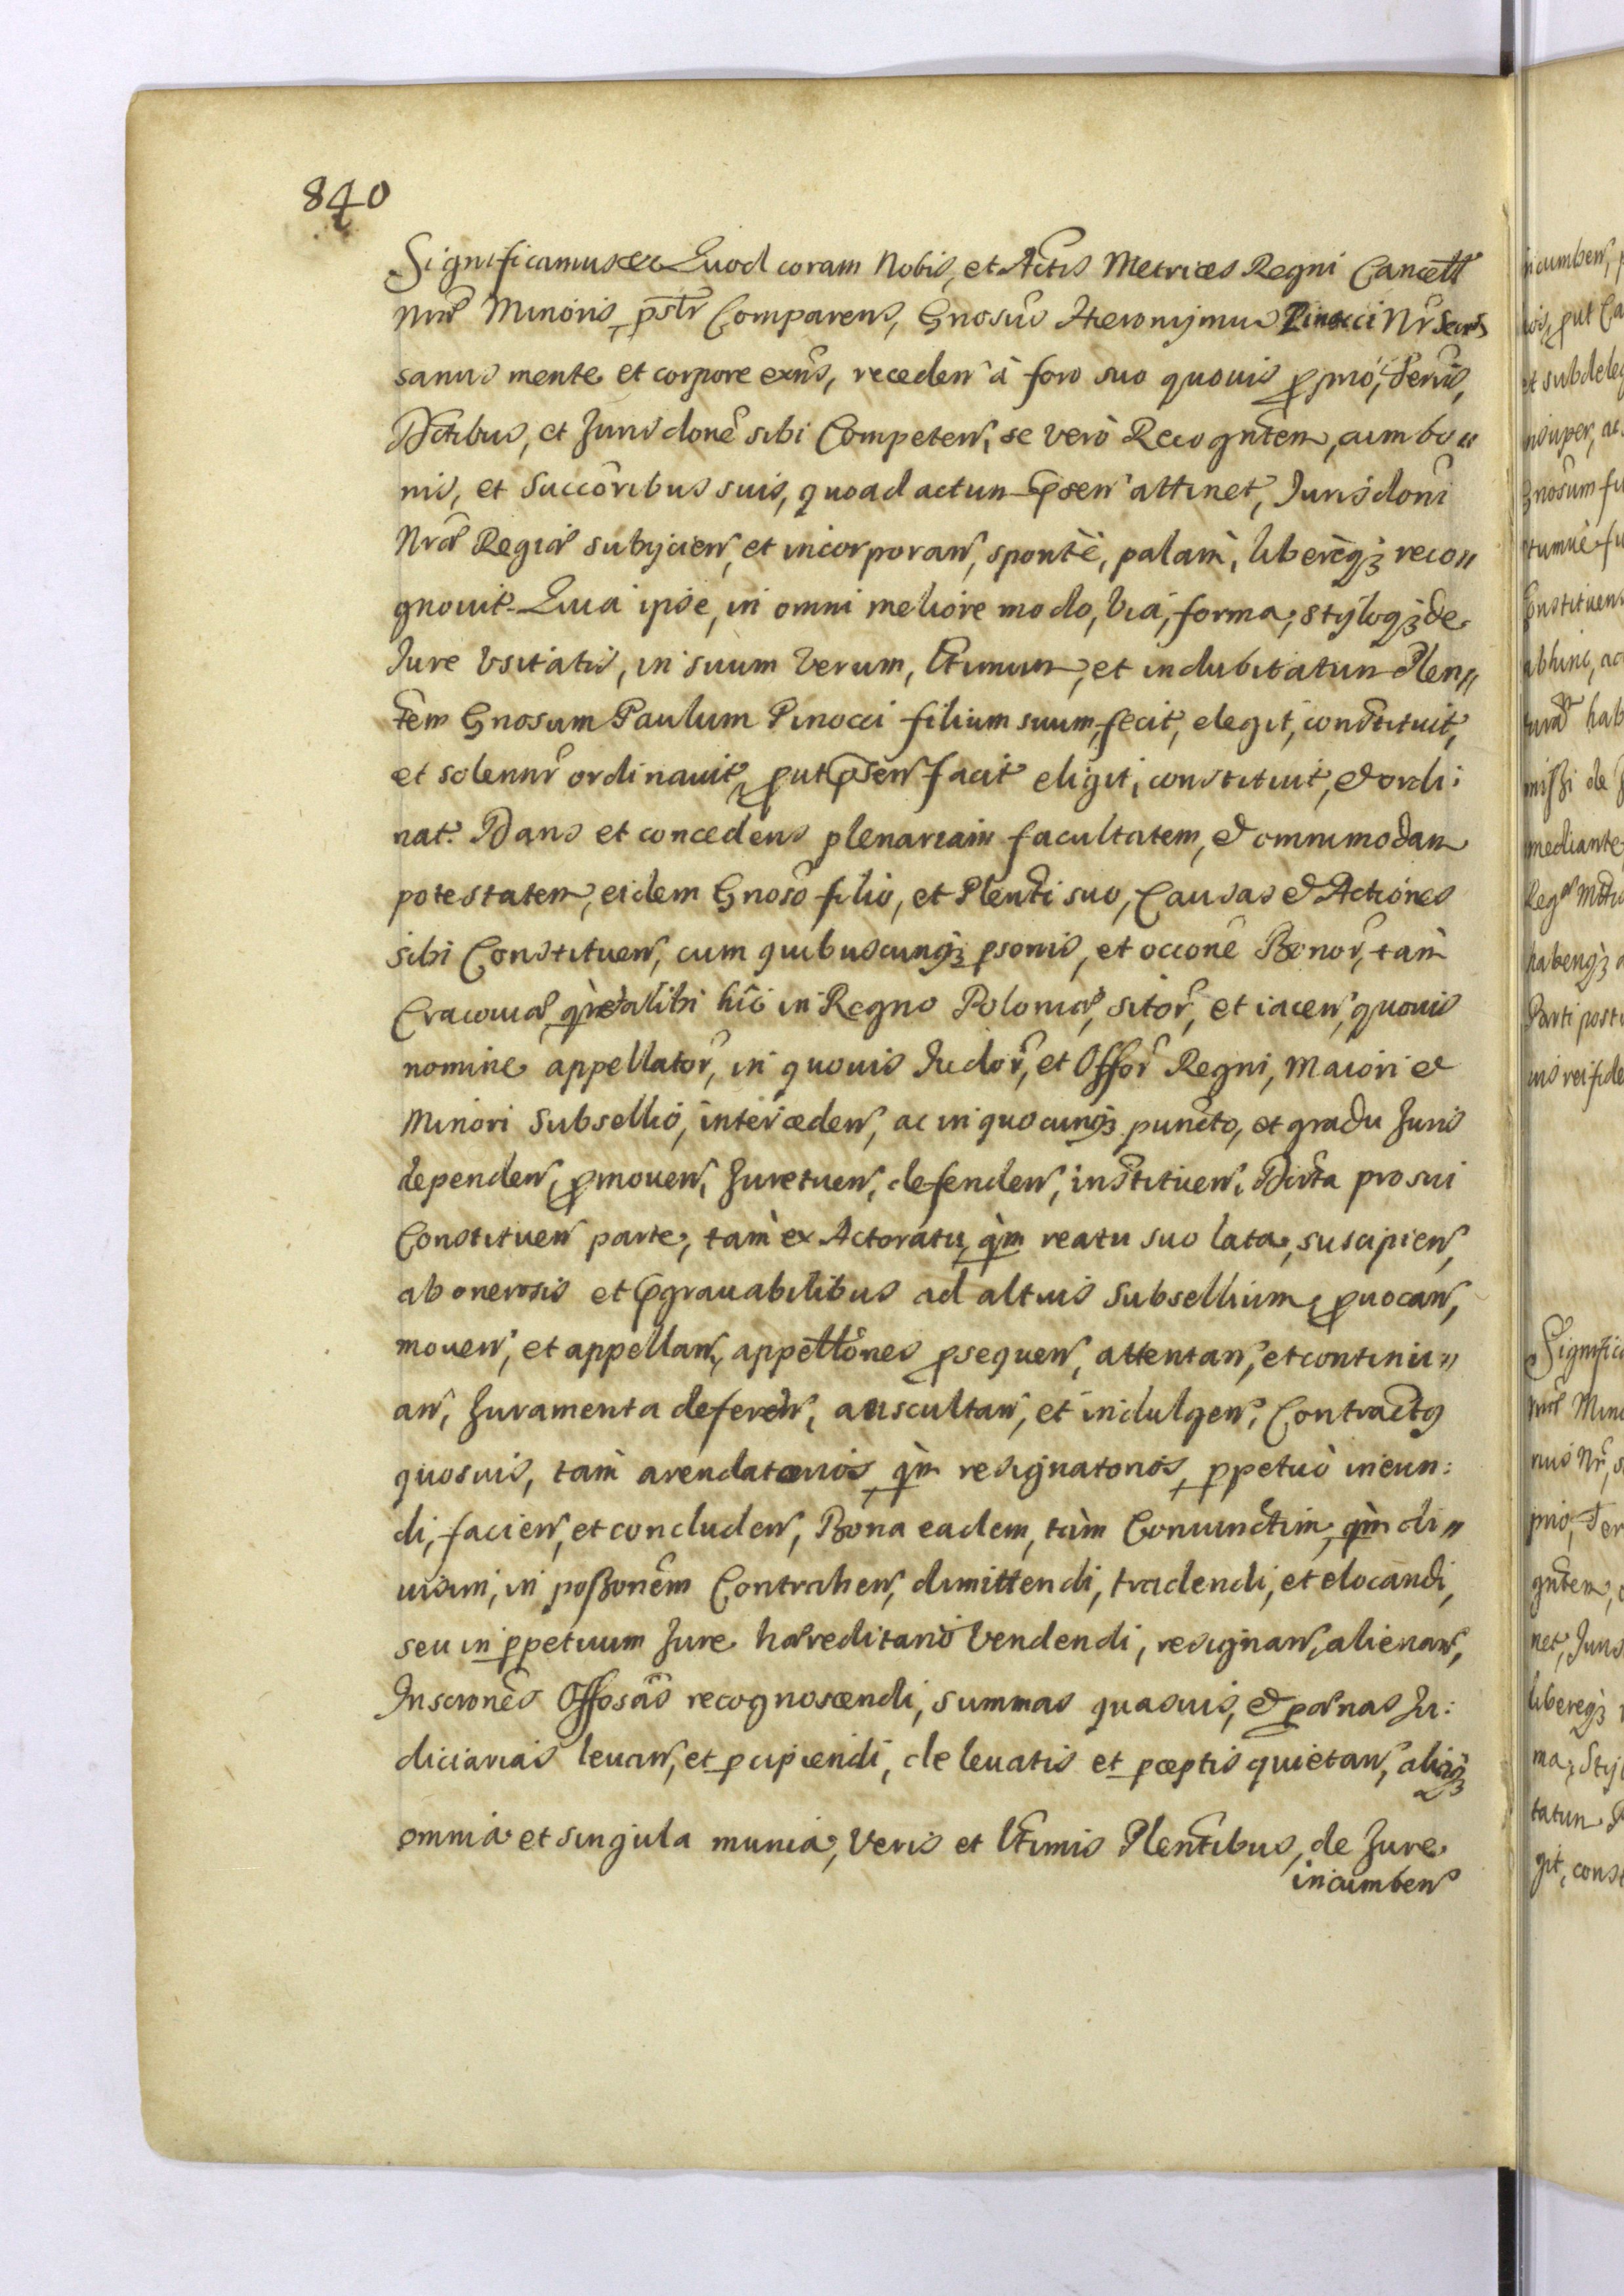 840
Significamus &c Quod coram Nobis, et Actis Metrices Regni Cancell
Nræ Minoris, pstr Comparens, Gnosus Hieronymus Pinocci Nr Secrs
sanus mente et corpore exns, receden à foro suo quouis pprio, Terris,
Dctibus, et Jurisdone sibi Competen, se verò Recogntem, cum bo„
nis, et Succoribus suis, quoad actum psen attinet, Jurisdoni
Nræ Regiæ subijcien, et incorporan, spontè, palam, liberèqз reco„
gnouit. Quia ipse, in omni meliore modo, via, forma, styloqз de
Jure vsitatis, in suum verum, lttimum, et indubitatum Plen„
tem Gnosum Paulum Pinocci filium suum, fecit, elegit, constituit,
et solennr ordinauit, put psen facit eligit, constituit, & ordi:
nat. Dans et concedens plenariam facultatem, & omnimodam
potestatem, eidem Gnoso filio, et Plenti suo, Causas & Actiones
sibi Constituen, cum quibuscunqз psonis, et occone Bonor, tam
Cracouiæ qm alibi hic in Regno Poloniæ, sitor, et iacen, quouis
nomine appellator, in quouis Judor, et Offor Regni, Maiori &
Minori Subsellio, interceden, ac in quocunqз puncto, et gradu Juris
dependen, pmouen, Juretuen, defenden, instituen, Dicta pro sui
Constituen parte, tam ex Actoratu, qm reatu suo lata, suscipien,
ab onerosis et pgrauabilibus ad altius Subsellium, puocan,
mouen, et appellan, appellones psequen, attentan, et continu„
an, Juramenta deferen, auscultan, et indulgen, Contractus
quosuis, tam arendatorios qm resignatorios, ppetuò ineun:
di, facien, et concluden, Bona eadem, tam Coniunctim, qm di„
uisim, in poßonem Contrahen, dimittendi, tradendi, et elocandi,
seu in ppetuum Jure hæreditario vendendi, resignan, alienan,
Inscrones Offosas recognoscendi, summas quasuis, & pœnas Ju:
diciarias leuan, et pcipiendi, de leuatis et pceptis quietan, aliaqз
omnia et singula munia, veris et lttimis Plentibus, de Jure
incumben